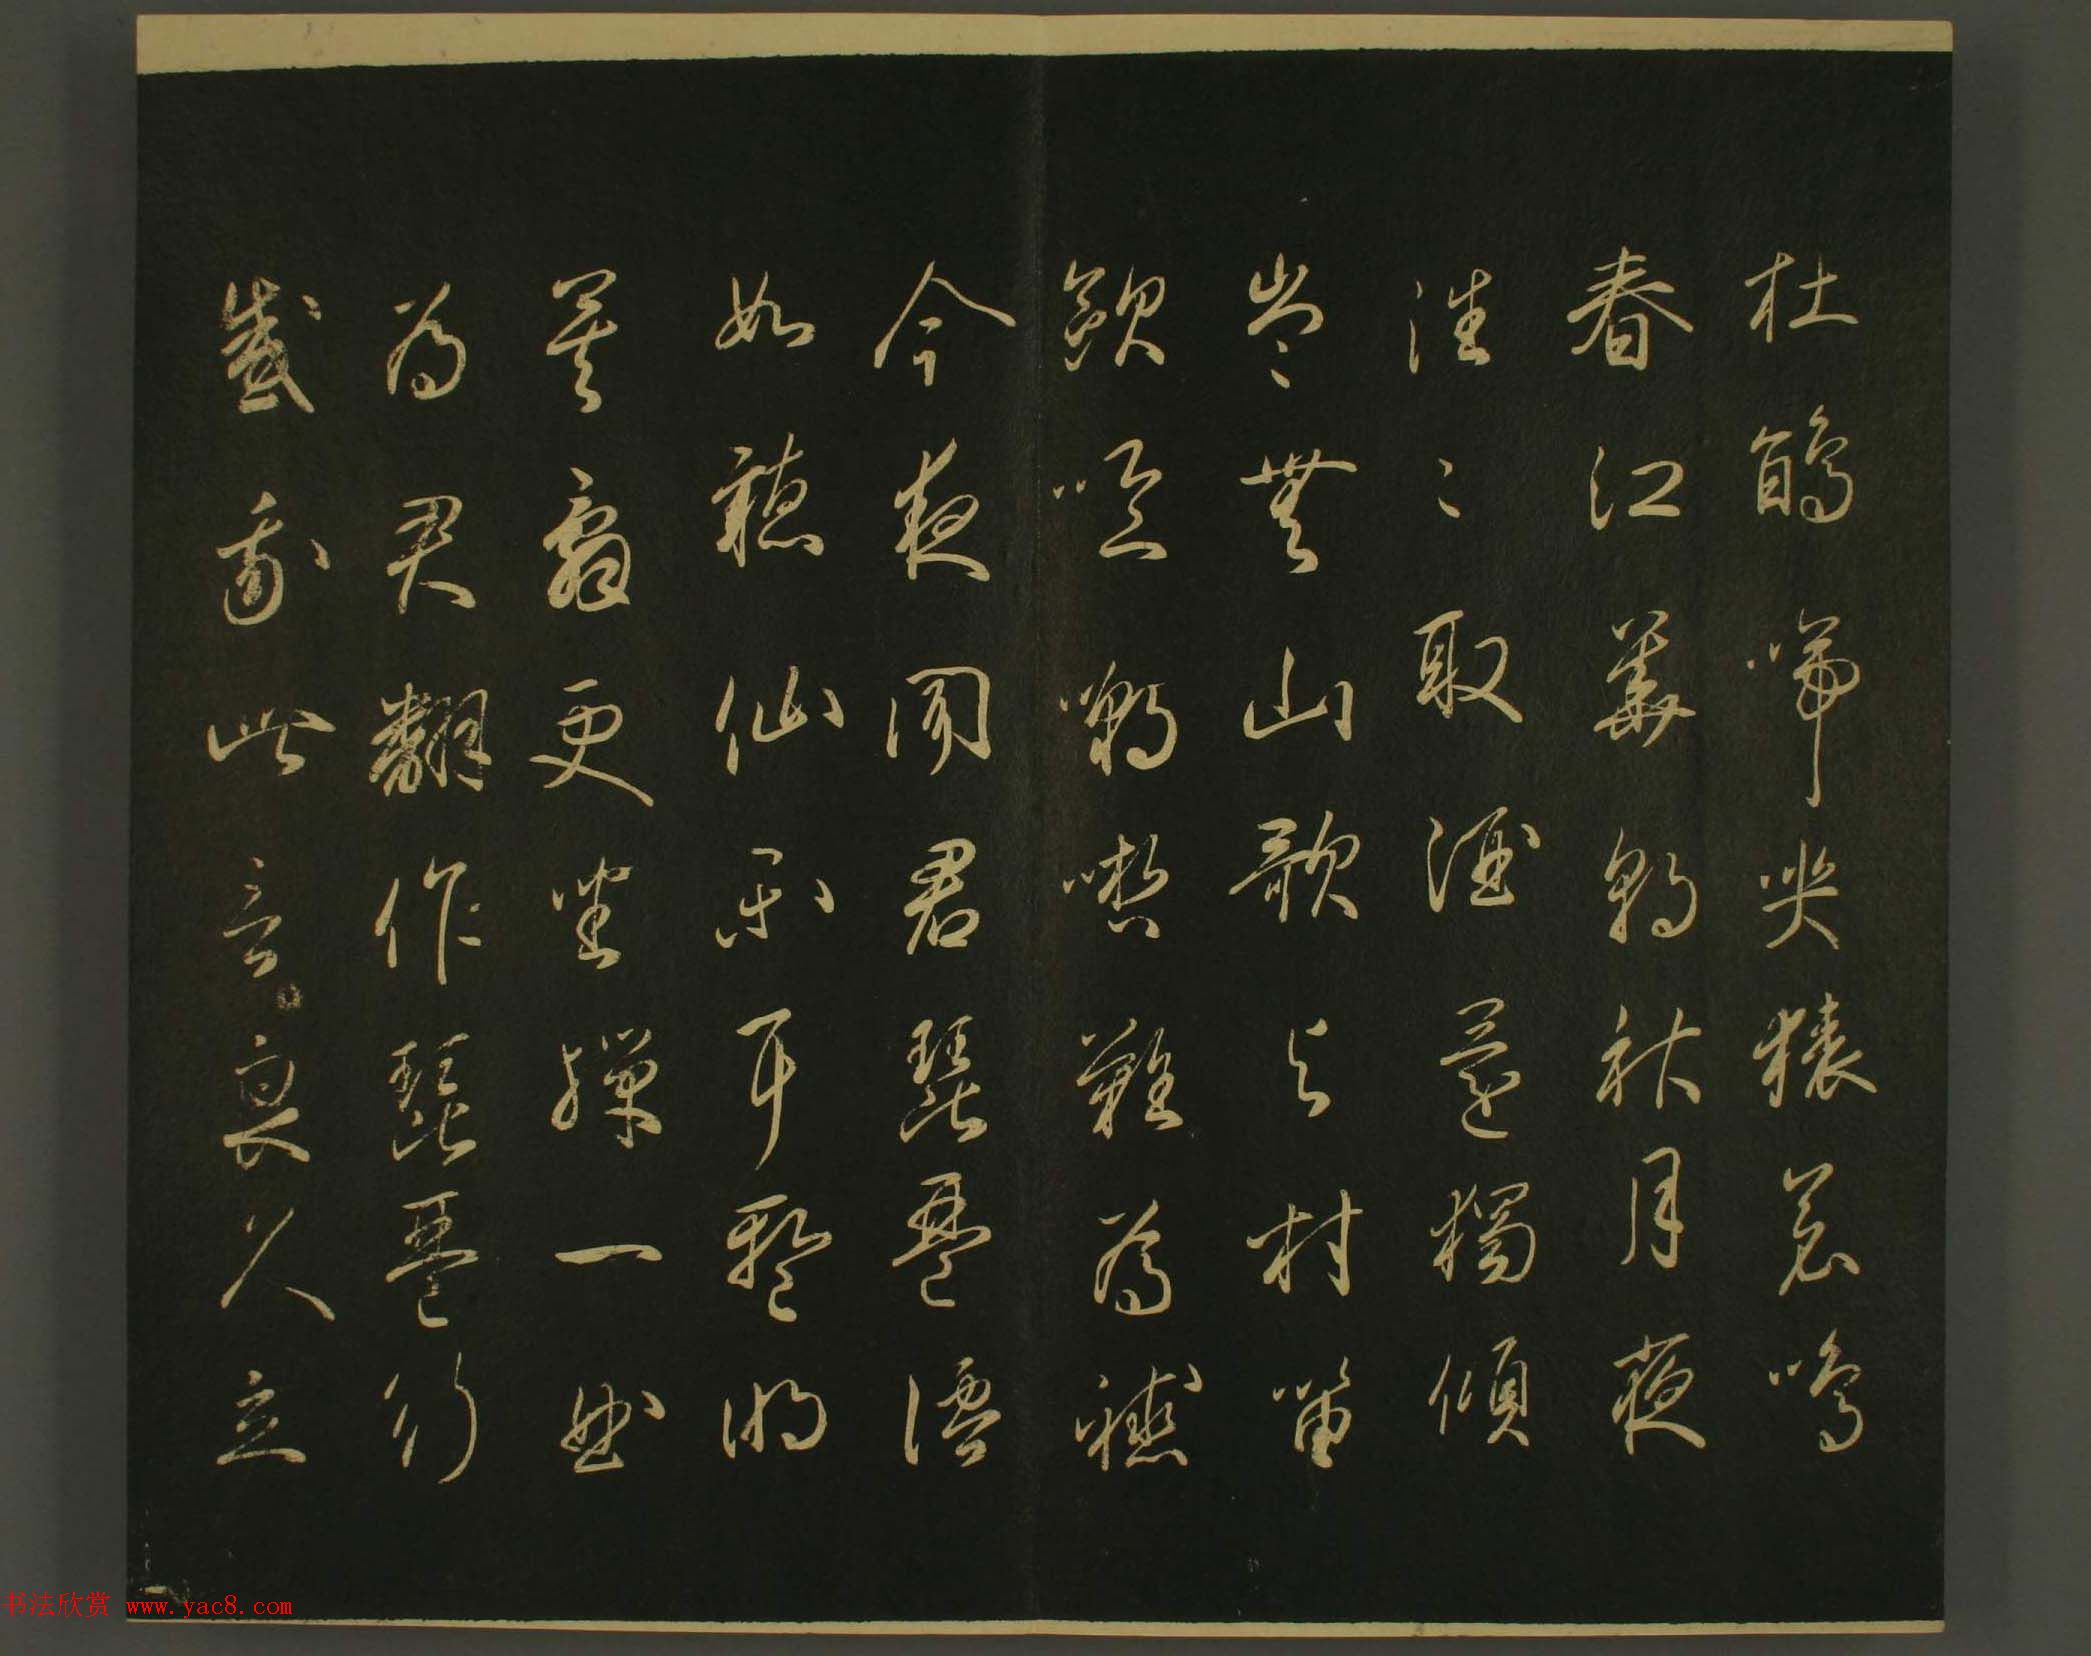 杜鵑啼哭猿哀鳴
春江華朝秋月夜
往〻取酒還獨傾
豈無山歌與村笛
歐啞嘲哳難為聽
今夜聞君琵琶語
如聽仙樂耳暫明
莫辭更坐彈一曲
為君翻作琵琶行
感我此言良久立
书法欣赏 www.yac8.com